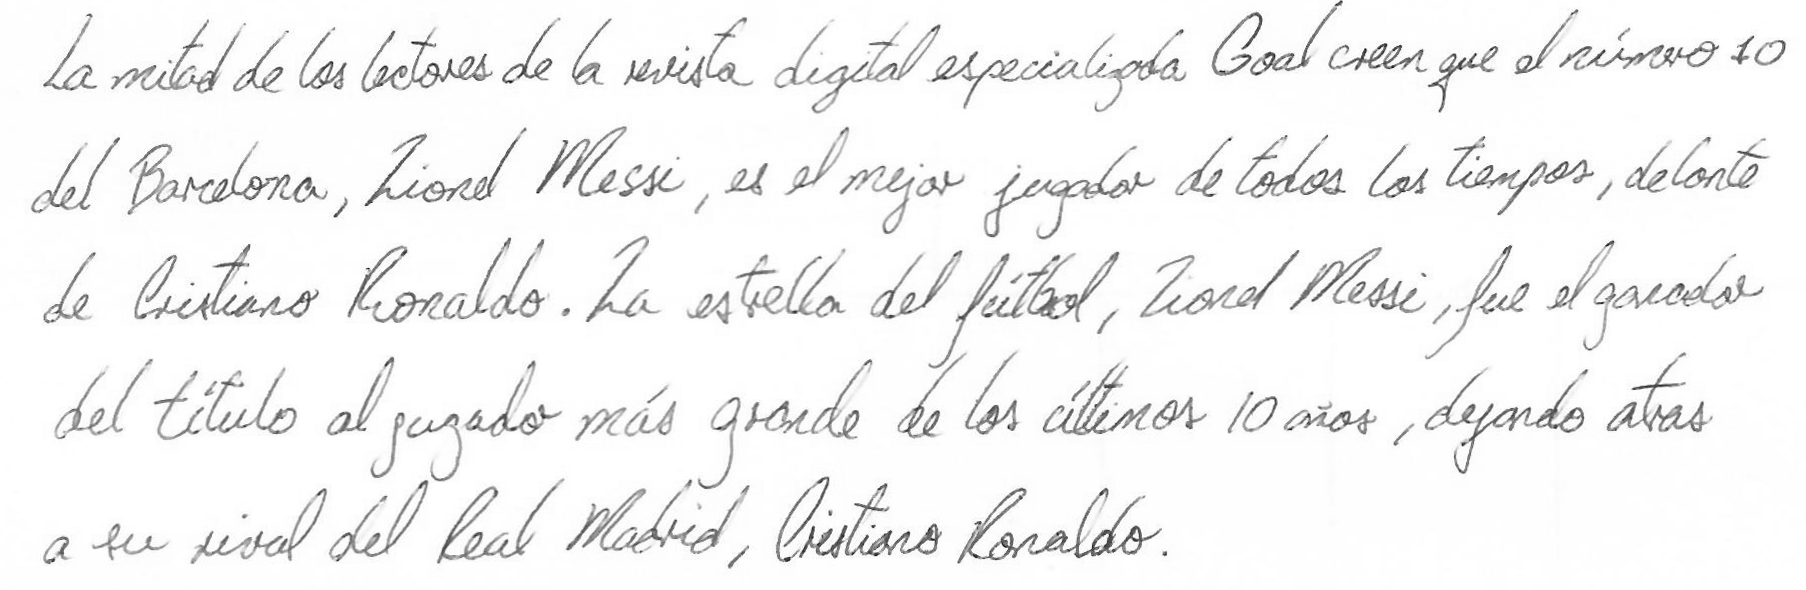 La mitad de los lectores de la revista digital especializada Goal creen que el número 10
del Barcelona, Lionel Messi, es el mejor jugador de todos los tiempos, delante
de Cristiano Ronaldo. La estrella del fútbol, Lionel Messi, fue el ganador
del título al jugador más grande de los últimos 10 años, dejando atras
a su rival del Real Madrid, Cristiano Ronaldo.